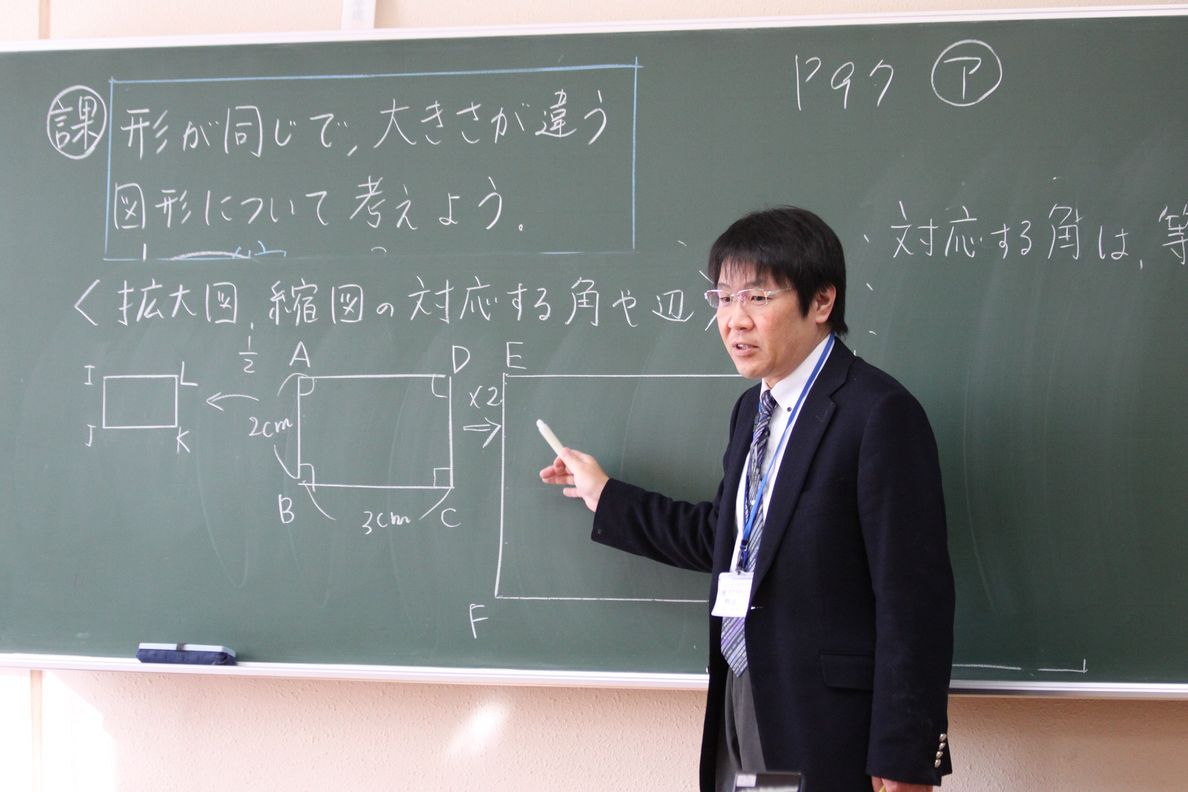 課
形が同じで,大きさが違う
図形について考えよう。
P97 ア
対応する角は,等
<拡大図,縮図の対応する角や辺
I L J K
1/2
A D B C
2cm
3cm
×2
E
F